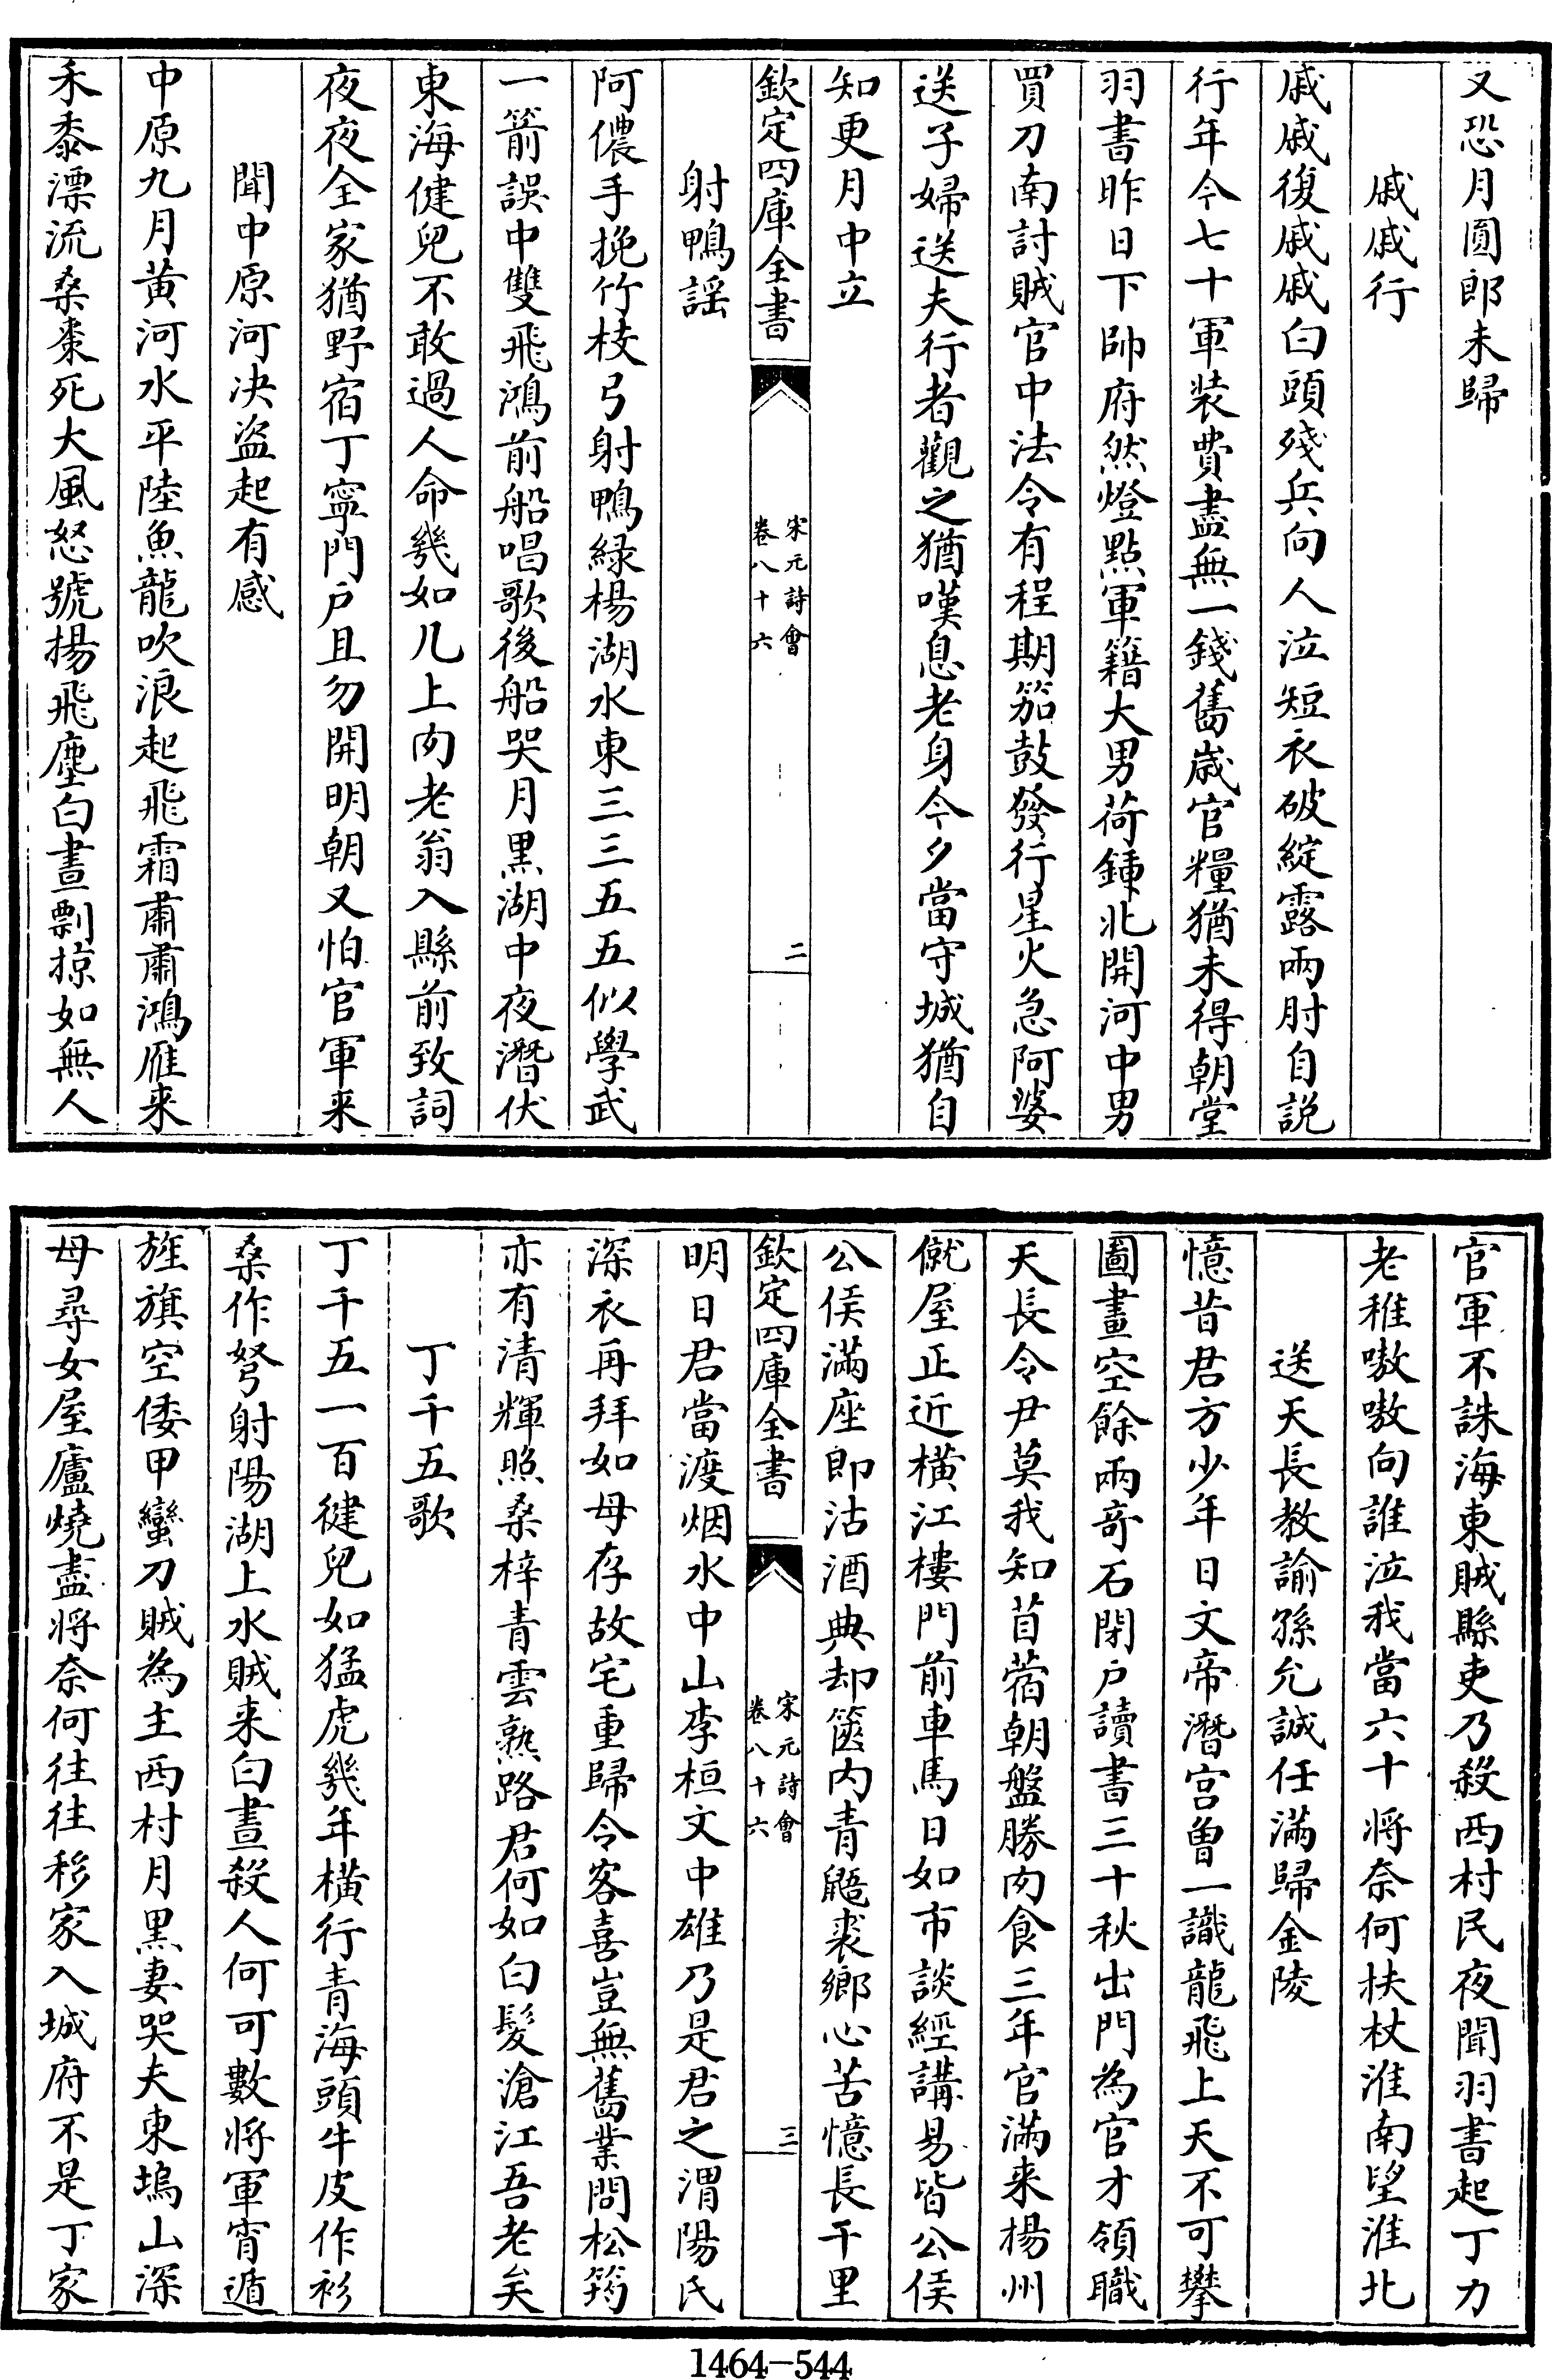 又恐月圓郎未歸
戚戚行
戚戚復戚戚白頭殘兵向人泣短衣破綻露兩肘自説
行年今七十軍装費盡無一錢舊嵗官糧猶未得朝堂
羽書昨日下帥府然燈點軍籍大男荷鍤北開河中男
買刀南討賊官中法令有程期笳鼓發行星火急阿婆
送子婦送夫行者觀之猶嘆息老身今夕當守城猶自
知更月中立
欽定四庫全書
宋元詩會
卷八十六
二
射鴨謡
阿儂手挽竹枝弓射鴨緑楊湖水東三三五五似學武
一箭誤中雙飛鴻前船唱歌後船哭月黒湖中夜潛伏
東海健兒不敢過人命幾如几上肉老翁入縣前致詞
夜夜全家猶野宿丁寧門戸且勿開明朝又怕官軍来
聞中原河决盗起有感
中原九月黄河水平陸魚龍吹浪起飛霜肅肅鴻雁来
禾黍漂流桑棗死大風怒號揚飛塵白晝剽掠如無人
官軍不誅海東賊縣吏乃殺西村民夜聞羽書起丁力
老稚嗷嗷向誰泣我當六十将奈何扶杖淮南望淮北
送天長教諭孫允誠任滿歸金陵
憶昔君方少年日文帝潛宫曽一識龍飛上天不可攀
圖畫空餘兩竒石閉户讀書三十秋出門為官才領職
天長令尹莫我知苜蓿朝盤勝肉食三年官滿来楊州
僦屋正近橫江樓門前車馬日如市談經講易皆公侯
公侯滿座即沽酒典却篋内青鼯裘鄉心苦憶長干里
欽定四庫全書
宋元詩會
卷八十六
三
明日君當渡烟水中山李桓文中雄乃是君之渭陽氏
深衣再拜如母存故宅重歸令客喜豈無舊業問松筠
亦有清輝照桑梓青雲熟路君何如白髮滄江吾老矣
丁千五歌
丁千五一百健兒如猛虎幾年橫行青海頭牛皮作衫
桑作弩射陽湖上水賊来白晝殺人何可數將軍宵遁
旌旗空倭甲蠻刀賊為主西村月黒妻哭夫東塢山深
母尋女屋廬燒盡将奈何往往移家入城府不是丁家
1464-544